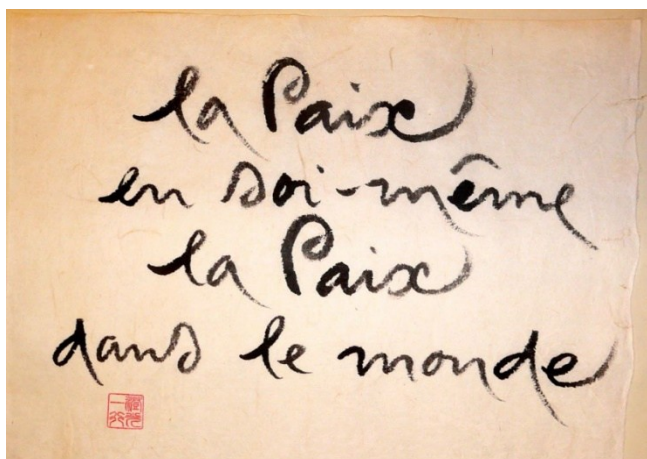 la Paix
en soi-même
la Paix
dans le monde